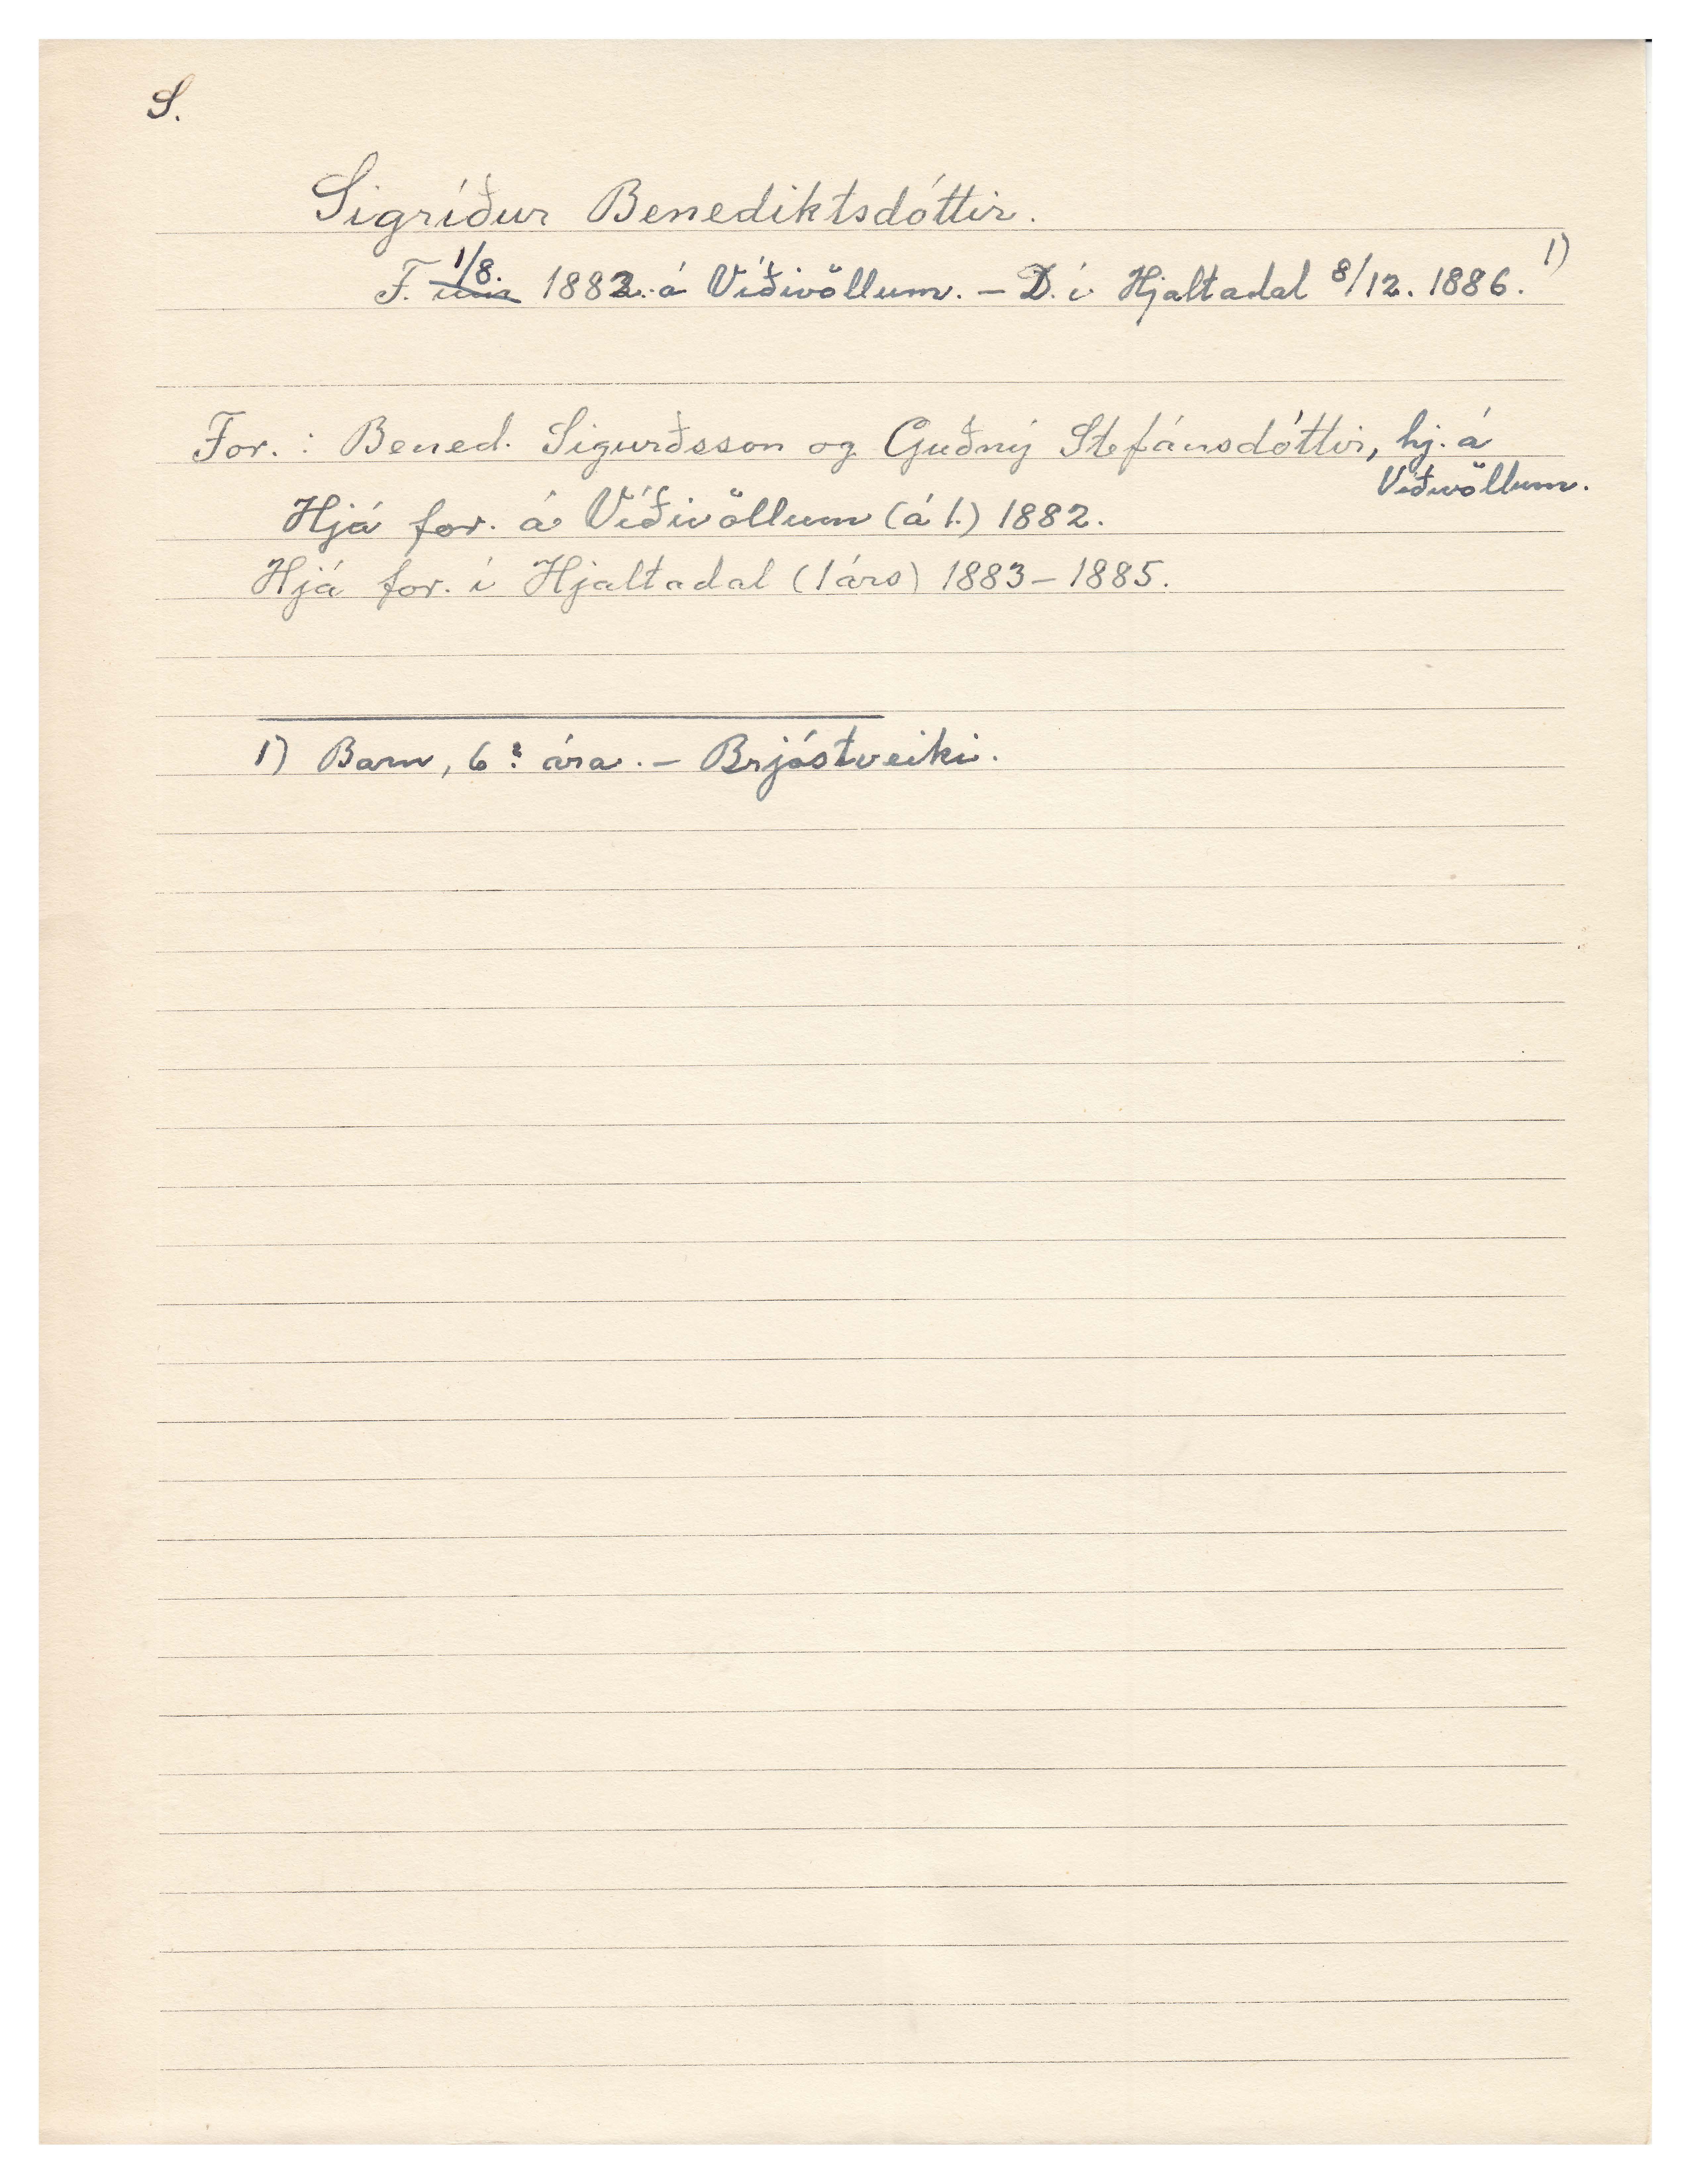 S.
Sigríður Benediktsdóttir.
F. um 1/8. 1882 á Víðivöllum. – D. í Hjaltadal 8/12. 1886. 1)
For.: Bened. Sigurðsson og Guðný Stefánsdóttir, hj. á
Víðivöllum.
Hjá for. á Víðivöllum (á 1.) 1882.
Hjá for. í Hjaltadal (1 árs) 1883–1885.
1) Barn, 6? ára. – Brjóstveiki.